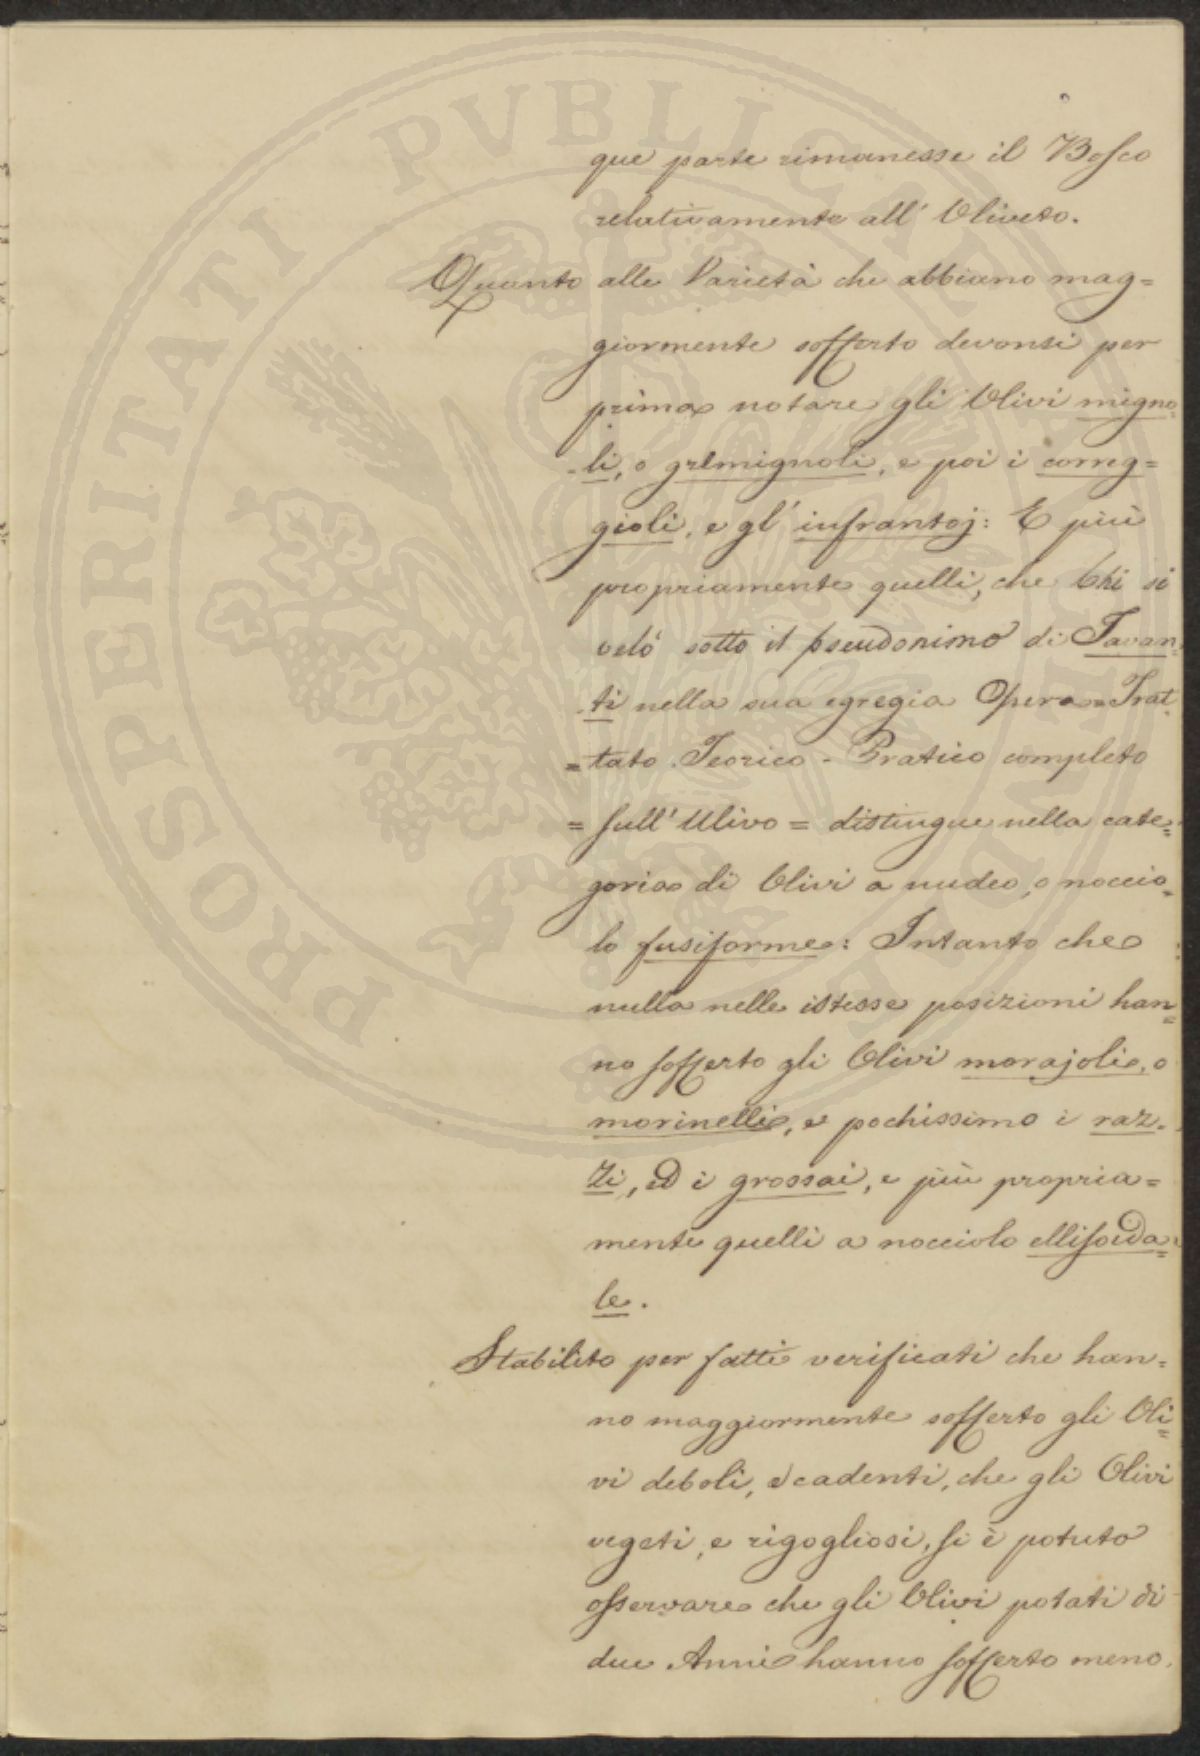 PROSPERITATI PVBLICAE AVGENDAE
que parte rimanesse il Bosco
relativamente all' Oliveto.
Quanto alle Varietà che abbiano mag=
giormente sofferto devonsi per
prima notare gli Olivi migno=
=li, o gremignoli, e poi i correg=
gioli, e gl' infrantoj: E più
propriamente quelli, che Chi si
velò sotto il pseudonimo di Tavan=
ti nella sua egregia Opera = Trat=
=tato Teorico-Pratico completo
=sull' Ulivo = distingue nella cate=
goria di Olivi a nucleo, o noccio=
lo fusiforme: Intanto che
nulla nelle istesse posizioni han=
no sofferto gli Olivi morajoli, o
morinelli, e pochissimo i raz=
zi, ed i grossai, e più propria=
mente quelli a nocciolo ellisoida=
le.
Stabilito per fatti verificati che han=
no maggiormente sofferto gli Oli=
vi deboli, e cadenti, che gli Olivi
vegeti, e rigogliosi, si è potuto
osservare che gli Olivi potati di
due Anni hanno sofferto meno.